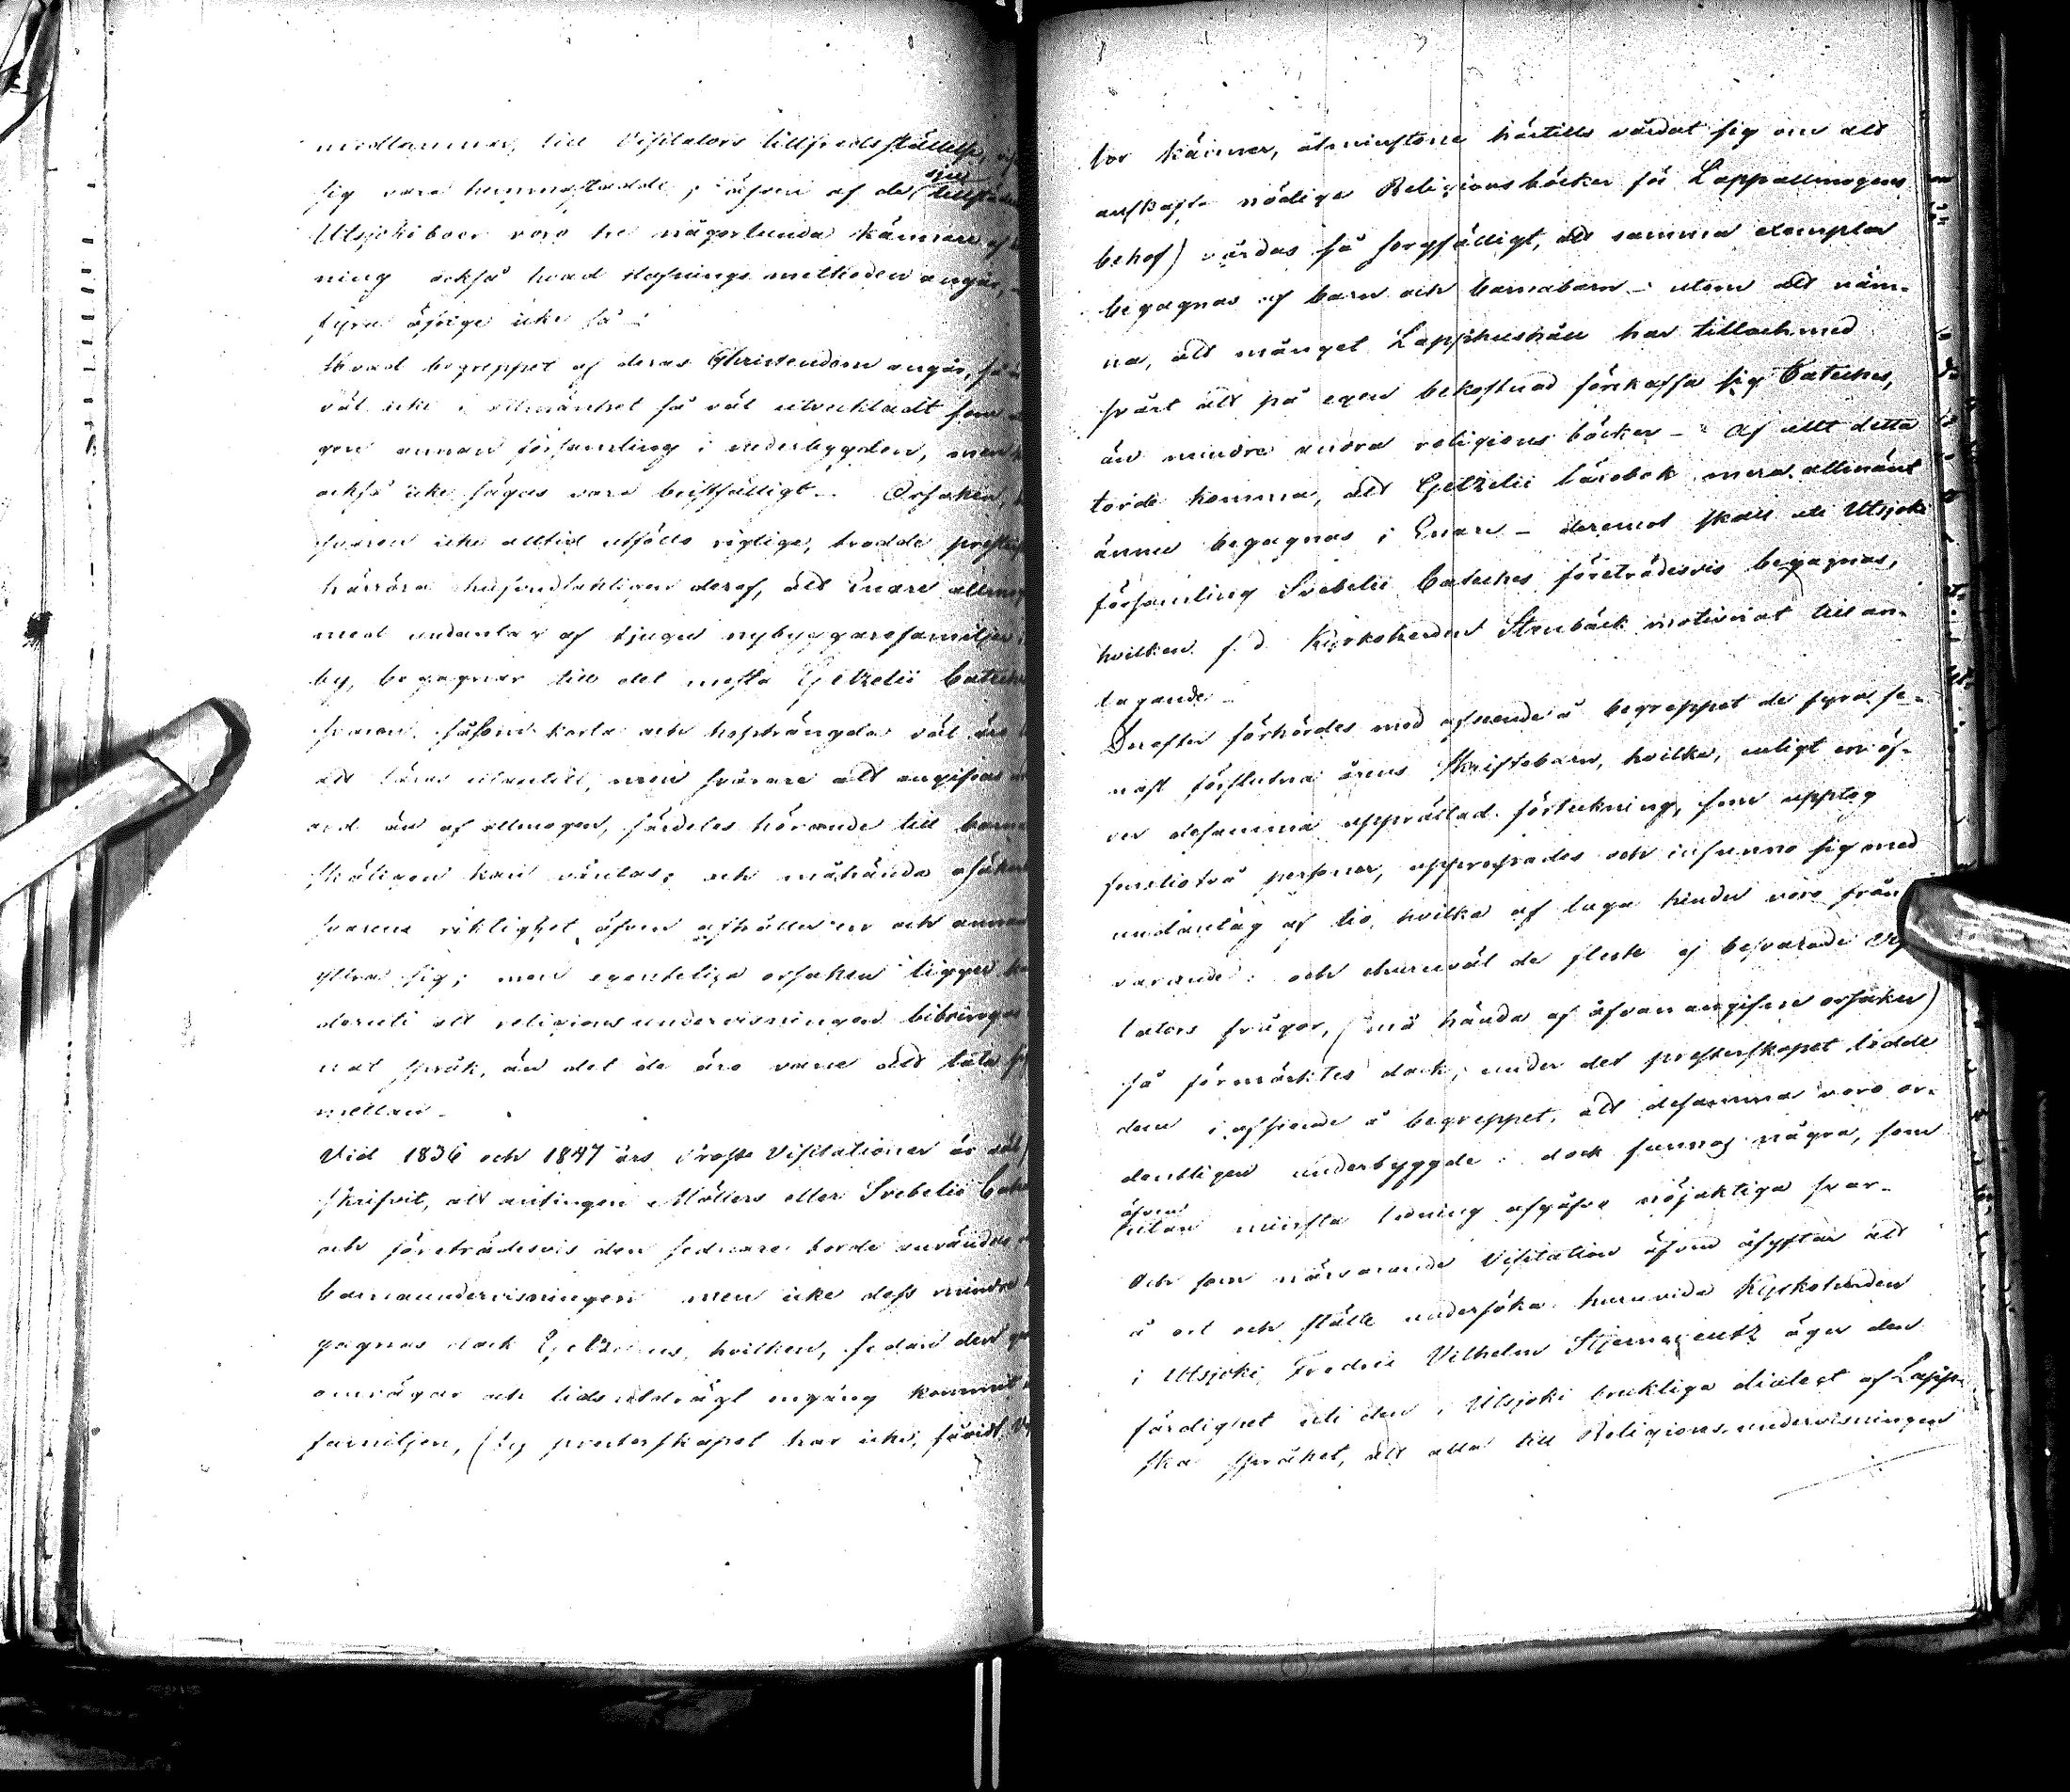 medlemmar, till Visitators tillfredsställelse,
sig vara hemmastadde; äfven af de sju tillstädes
Utsjokiboer voro tre någorlunda kännare af
ning också hvad stafnings methoden angår,
fyra öfrige icke så –
Hvad begreppet af deras Christendom angår, så
väl icke i allmänhet så väl utveckladt som
gon annan församling i nederbygden, men
också icke sägas vara bristfälligt. Orsaken,
svaren icke alltid utföllo riglige, trodde prester
härröra hufvudsakligen deraf, att Enare allmog
med undantag af tjugu nybyggarefamiljer i
by, begagnar till det mesta Gjetzelii Cateches
svaren såsom korta och hopträngda väl äro
att läras utantill, men svårare att angifvas
ord än af allmogen, särdeles hörande till barna
skäligen kan väntas; och måhända osäker
svarens riktighet äfven afhåller en och annan
yttra sig; men egentliga orsaken ligger
deruti att religions undervisningen bibringas
nat språk, än det de äro vane att tala
mellan –
Vid 1836 och 1847 års Prosts Visitationer är väl
skrifvit, att antingen Möllers eller Svebelii Cate
och företrädesvis den sednare borde användas
barnaundervisningen men icke dess mindre
gagnas dock Gjetzelius, hvilken, sedan den
omvägar och tidsutdrägt ingång kommit
familjen, (ty presterskapet har icke, såvidt
tor känner, åtminstone härtills vårdat sig om att
anskaffa nödiga Religionsböcker för Lappallmogens
behof) vårdas så sorgfälligt, att samma exemplar
begagnas af barn och barnabarn – utom att näm-
na, att månget Lapphushåll har tillochmed
svårt att på egen bekostnad förskaffa sig Cateches,
än mindre andra religions böcker – Af allt detta
torde komma, att Gjetzelii lärobok mera allmänt
ännu begagnas i Enare – deremot skall uti Utsjoki
församling Svebelii Cateches företrädesvis begagnas,
hvilken f. d. Kyrkoherden Stenbäck motiverat till an-
tagande –
Derefter förhördes med afseende å begreppet de fyra se-
nast förflutna årens Skriftebarn, hvilka, enligt en öf-
ver desamma upprättad förtekning, som upptog
femtiotvå personer, uppropades och infunno sig med
undantag af tio, hvilka af laga hinder voro från
varande: och ehuruväl de fleste ej besvarade Visi
tators frågor, (må hända af ofvan angifven orsaker)
så förmärktes dock, under det presterskapet ledde
dem i afseende å begreppet, att desamma voro or-
dentligen underbyggde: dock funnos några, som
äfven utan minsta ledning afgåfvo nöjaktiga svar –
Och som närvarande Visitation äfven åsyftar att
å ort och ställe undersöka huruvida Kyrkoherden
i Utsjoki, Fredric Vilhelm Stjerncreutz äger den
färdighet uti den i Utsjoki brukliga dialect af Lapp-
ska språket, att alla till Religions undervisningen